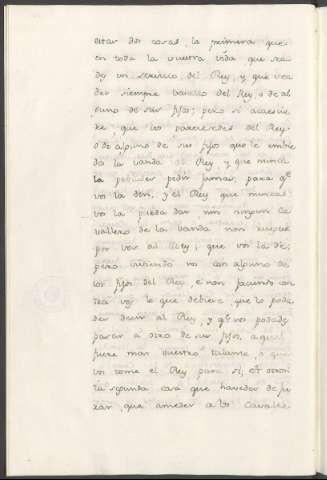 dos cosas, la primera que
en toda la vuestra vida que sea
en servicio del Rey, y que sea
des siempre vasallo del Rey, o de al
guno de sus fijos; pero si acaescie
re, que vos partieredes del Rey
o de alguno de sus fijos que le
da la vanda al Rey, y que nunca
la pedir jamas, para que
vos la den, y el Rey que nunca
vos la pueda dar nin ningun Ca
vallero de la vanda non
por vos al Rey, que vos la dé;
pero viviendo vos con alguno de
los fijos del Rey, e non faciendo con
tra vos lo que debiere, que lo poda
des decir al Rey, y que vos podades
pasar á otro de sus fijos, a qual
fuere mas vuestro talante, o que
vos tome el Rey para sí; et otrosi
la segunda cosa que havedes de ju
rar, que amedes a los Cavalle